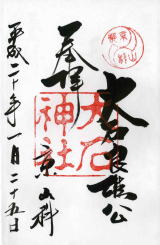 奉拝
大石良雄公
大石神社
京山科
平成二十年一月二十五日